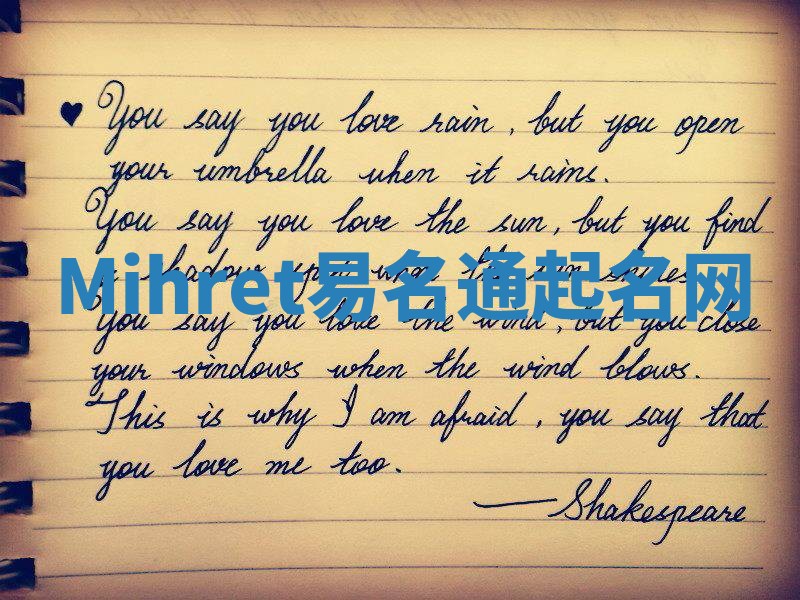 ♥ You say you love rain, but you open
your umbrella when it rains.
You say you love the sun, but you find
a shadow spot when the sun shines.
Mihret易名通起名网
You say you love the wind, but you close
your windows when the wind blows.
This is why I am afraid, you say that
you love me too.
—Shakespeare